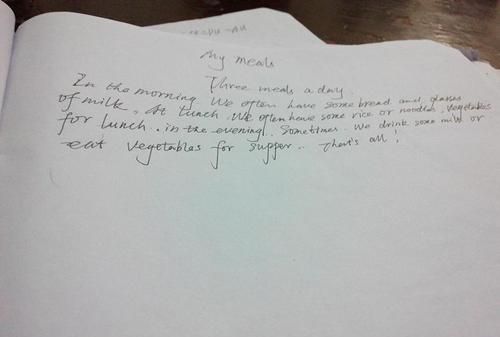 My meals
Three meals a day.
In the morning. We often have some bread and glasses
of milk. At lunch. We often have some rice or noodles. vegetables
for lunch. in the evening. Sometimes. We drink some milk or
eat vegetables for supper.. That's all!